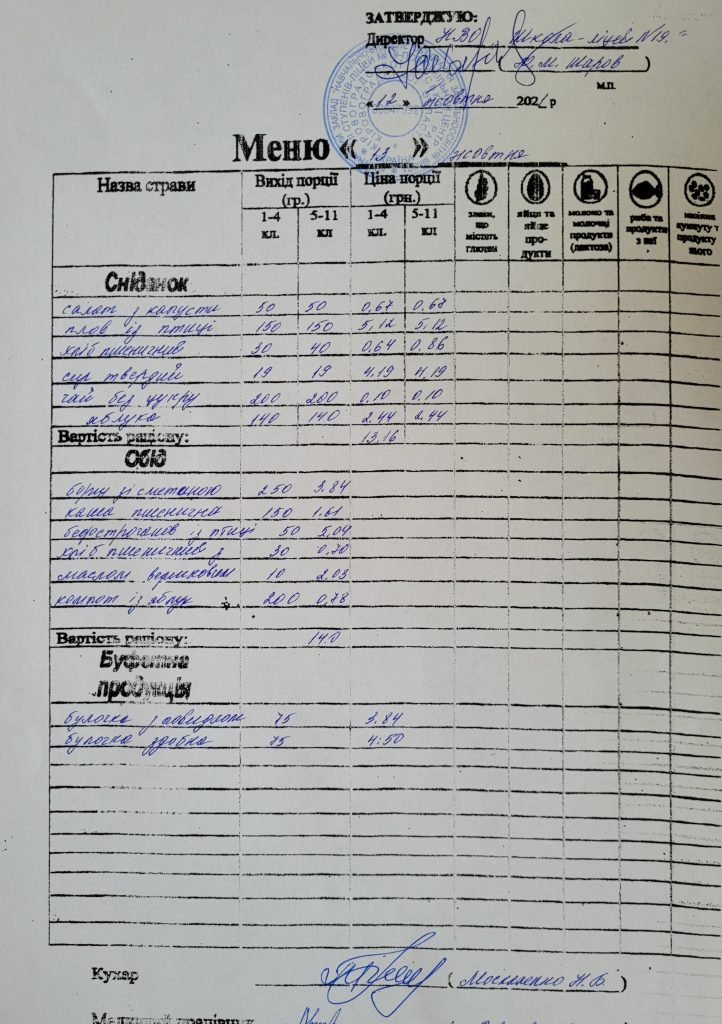 ЗАТВЕРДЖУЮ:
Директор НВО "Школа-ліцей №19"
(Ю.М. Жаров)
м.п.
«12» жовтня 2021 р
Меню « 13 » жовтня
Назва страви Вихід порції (гр.) Ціна порції (грн.)
1-4 кл. 5-11 кл 1-4 кл. 5-11 кл
злаки, що містять глютен
яйця та яйце продукти
молоко та молочні продукти (лактоза)
риба та продукти з неї
насіння кунжуту т продукту нього
Сніданок
салат з капусти 50 50 0,67 0,67
плов із птиці 150 150 5,12 5,12
хліб пшеничний 30 40 0,64 0,86
сир твердий 19 19 4.19 4.19
чай без цукру 200 200 0.10 0.10
яблуко 140 140 2.44 2.44
Вартість раціону: 13.16
Обід
борщ зі сметаною 250 3.84
каша пшенична 150 1.61
бефстроганов із птиці 50 5,04
хліб пшеничний з 30 0,70
маслом вершковим 10 2,03
компот із яблук 200 0,78
Вартість раціону: 14.0
Буфетна
продукція
булочка з повидлом 75 3.84
булочка здобна 75 4.50
Кухар (Москаленко Н.В.)
Медичний працівник